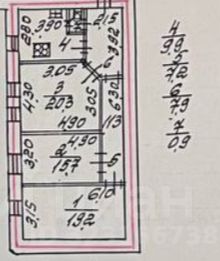 3.90
2.15
2.80
4
3.92
6
3.05
3
20.3
4.30
3.05
6.30
4.90
11.3
4.90
2
15.7
3.20
5
6.10
1
19.2
3.15
4
9.9
5
7.2
6
7.9
7
0.9